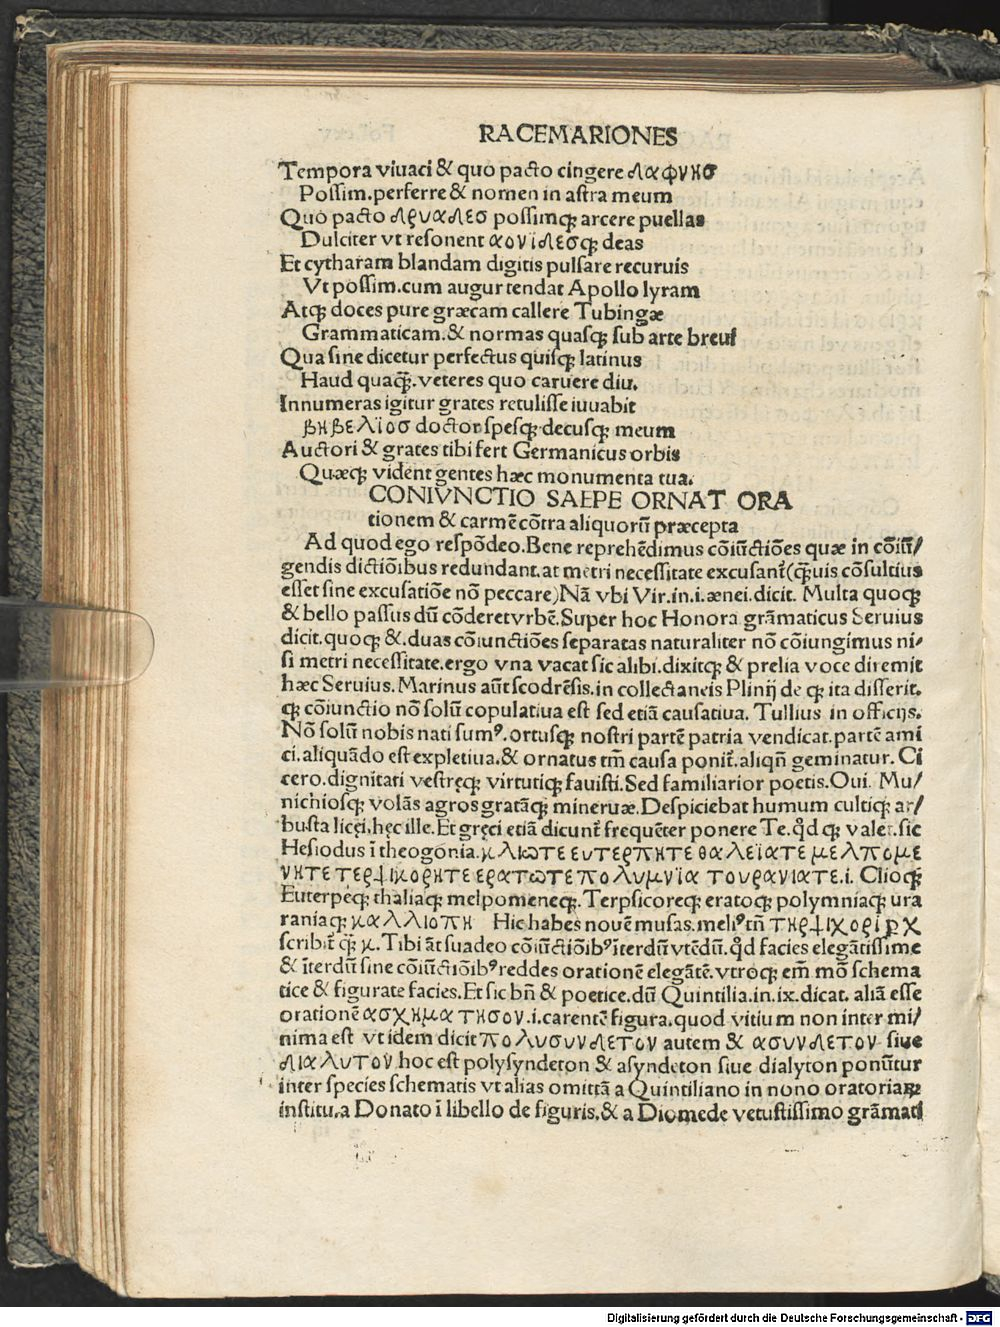 RACEMARIONES
Tempora viuaci & quo pacto cingere δαφνησ
Possim.perferre & nomen in astra meum
Quo pacto δρυαδεσ possimqꝫ arcere puellas
Dulciter vt resonent αονίδεσqꝫ deas
Et cytharam blandam digitis pulsare recuruis
Vt possim.cum augur tendat Apollo lyram
Atqꝫ doces pure græcam callere Tubingæ
Grammaticam.& normas quasqꝫ sub arte breui
Qua sine dicetur perfectus quisqꝫ latinus
Haud quaqꝫ̃.veteres quo caruere diu.
Innumeras igitur grates retulisse iuuabit
βηβελϊοσ doctor spesqꝫ decusqꝫ meum
Auctori & grates tibi fert Germanicus orbis
Quæqꝫ vident gentes hæc monumenta tua.
CONIVNCTIO SAEPE ORNAT ORA
tionem & carmē cōtra aliquorū præcepta
Ad quod ego respōdeo.Bene reprehēdimus cōiūctiōes quæ in cōiū/
gendis dictiōibus redundant.at metri necessitate excusant᷑(qꝫ̃uis cōsultius
esset sine excusatiōe nō peccare)Nā vbi Vir.in.i.ænei.dicit. Multa quoqꝫ
& bello passus dū cōderet vrbē.Super hoc Honora.grāmaticus Seruius
dicit.quoqꝫ &.duas cōiunctiōes separatas naturaliter nō cōiungimus ni/
si metri necessitate.ergo vna vacat sic alibi.dixitqꝫ & prelia voce diremit
hæc Seruius.Marinus aūt scodrēsis.in collectaneis Plinij de qꝫ ita disserit.
qꝫ cōiunctio nō solū copulatiua est sed etiā causatiua. Tullius in officijs.
Nō solū nobis nati sumꝰ.ortusqꝫ nostri partē patria vendicat.partē ami
ci.aliquādo est expletiua.& ornatus tm̄ causa ponit᷑.aliqn̄ geminatur. Ci
cero.dignitati vestręqꝫ virtutiqꝫ fauisti.Sed familiarior poetis.Oui. Mu/
nichiosqꝫ volās agros gratāqꝫ mineruæ.Despiciebat humum cultiqꝫ ar/
busta licęi.hęc ille.Et gręci etiā dicunt᷑ frequēter ponere Te.qd̄ qꝫ valet.sic
Hesiodus ī theogonia.κλιωτε ευτερπητε θαλεϊατε μελπομε
νητε τερψιχορητε ερατωτε πολυμνϊα τουρανιατε.i. Clioqꝫ
Euterpeqꝫ thaliaqꝫ melpomeneqꝫ.Terpsicoreqꝫ eratoqꝫ polymniaqꝫ ura
raniaqꝫ καλλιοπη Hic habes nouē musas.meliꝰ tn̄
scribit᷑ qꝫ̃ κ.Tibi āt suadeo cōiūctiōibꝰ īterdū vtēdū.qd̄ facies elegātissime
& īterdū sine cōiūctiōibꝰ reddes orationē elegātē.vtroqꝫ em̄ mō schema
tice & figurate facies.Et sic bn̄ & poetice.dū Quintilia.in.ix.dicat. aliā esse
orationē ασχημα τησον.i.carentē figura.quod vitium non inter mi/
nima est vt idem dicit πολυσυνδετον autem & ασυνδετον siue
διαλυτον hoc est polysyndeton & asyndeton siue dialyton ponūtur
inter species schematis vt alias omittā a Quintiliano in nono oratoriaꝝ
institu.a Donato ī libello de figuris.& a Diomede vetustissimo grāmati
Digitalisierung gefördert durch die Deutsche Forschungsgemeinschaft - DFG